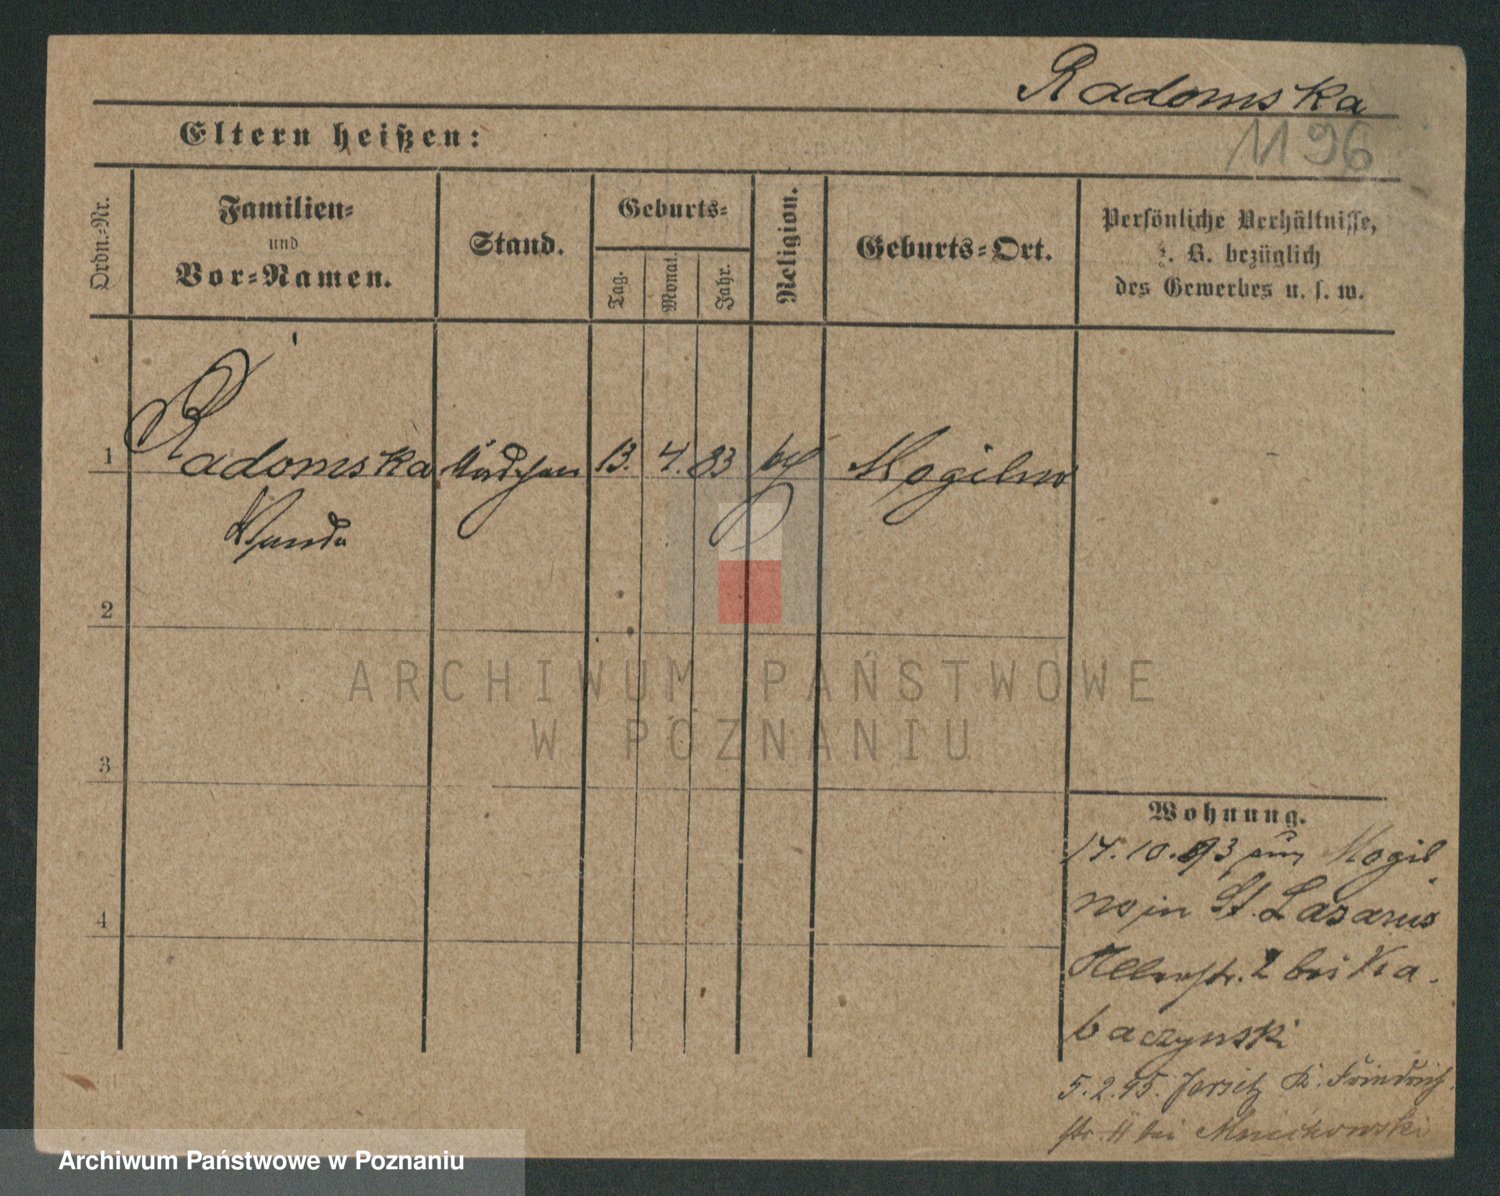 Radomska
1196
Eltern heißen:
Ordn.-Nr.
Familien-
und
Vor-Namen.
Stand.
Geburts-
Tag.
Monat.
Jahr.
Religion.
Geburts-Ort.
Persönliche Verhältnisse,
z. B. bezüglich
des Gewerbes u. s. w.
1
Radomska
Mädchen
13.
4.
83
kath
Mogilno
Wanda
2
ARCHIWUM PAŃSTWOWE
W POZNANIU
3
Wohnung.
14.10.93 aus Mogil
no in St. Lazarus
2 bei Ka
baczynski
4
5.2.95. Jersitz K. Friedrich
str. 11 bei Mnichowski
Archiwum Państwowe w Poznaniu